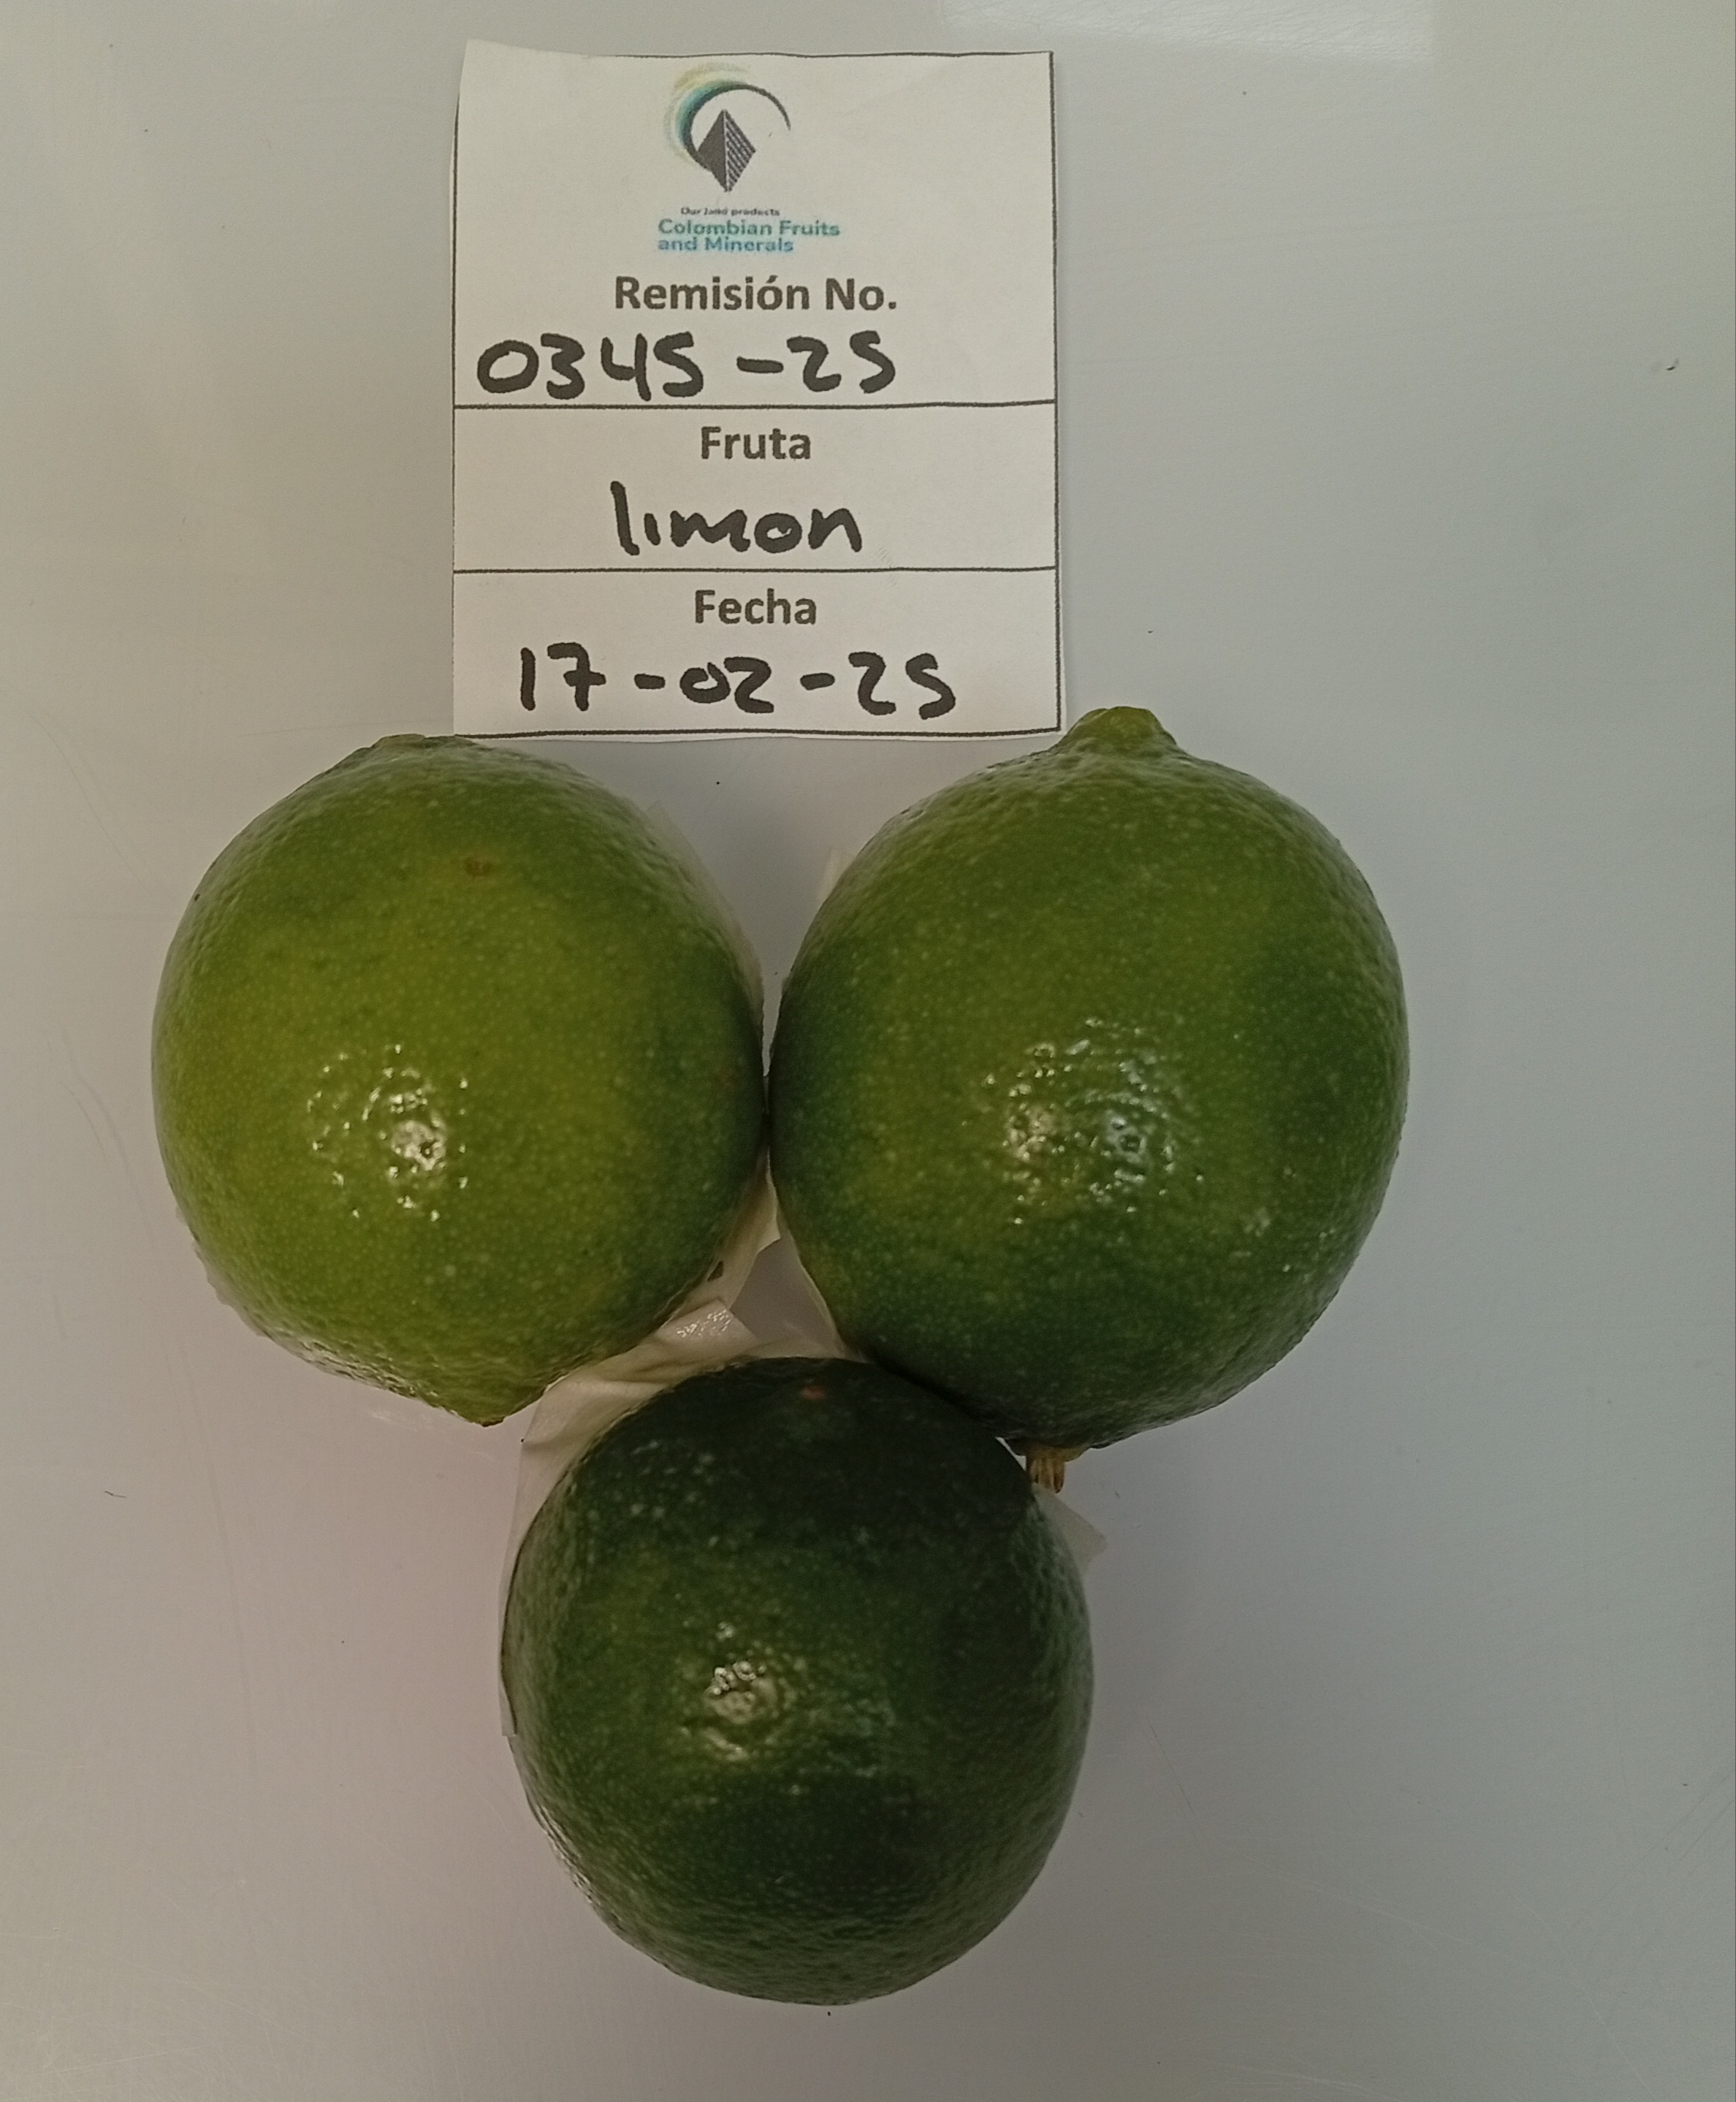 Our land products
Colombian Fruits
and Minerals
Remisión No.
0345-25
Fruta
limon
Fecha
17-02-25